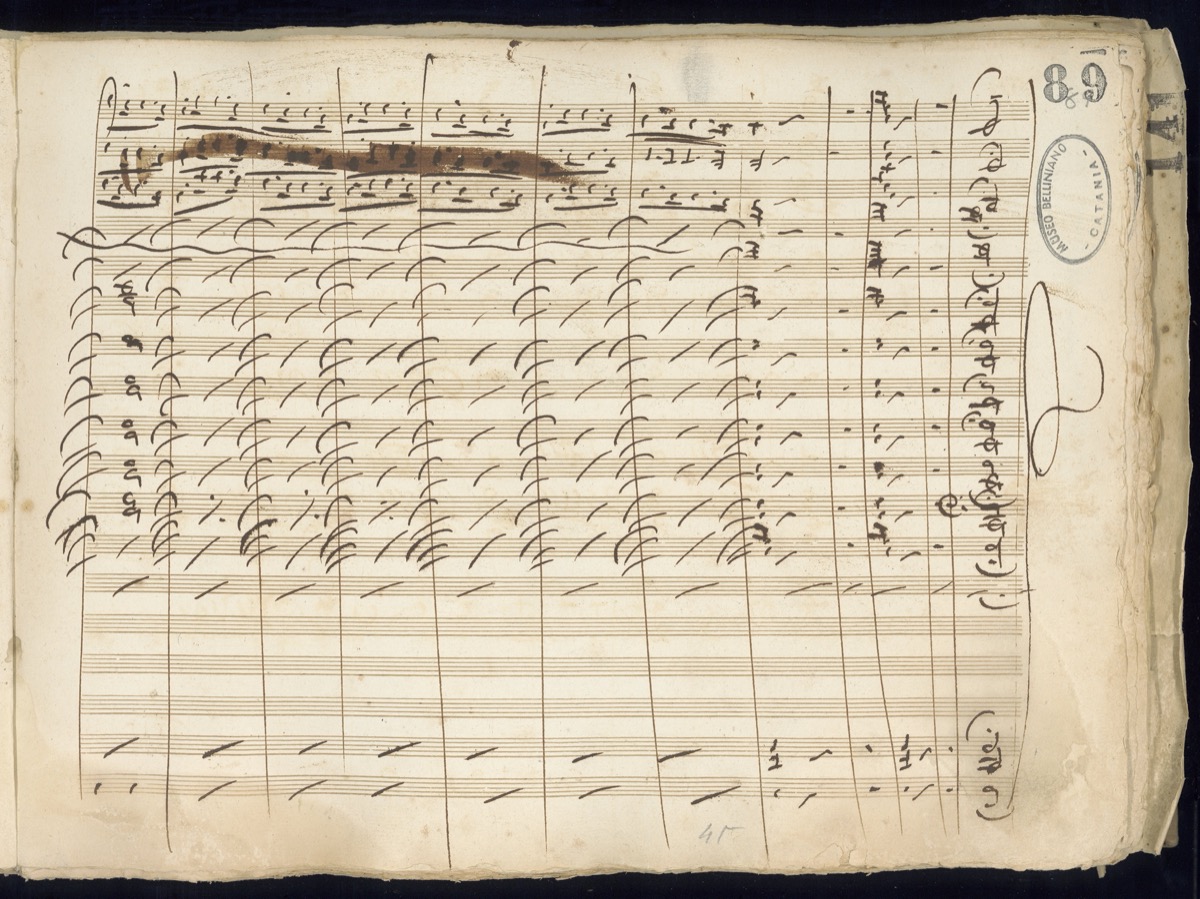 89
MUSEO BELLINIANO
- CATANIA -
141
45